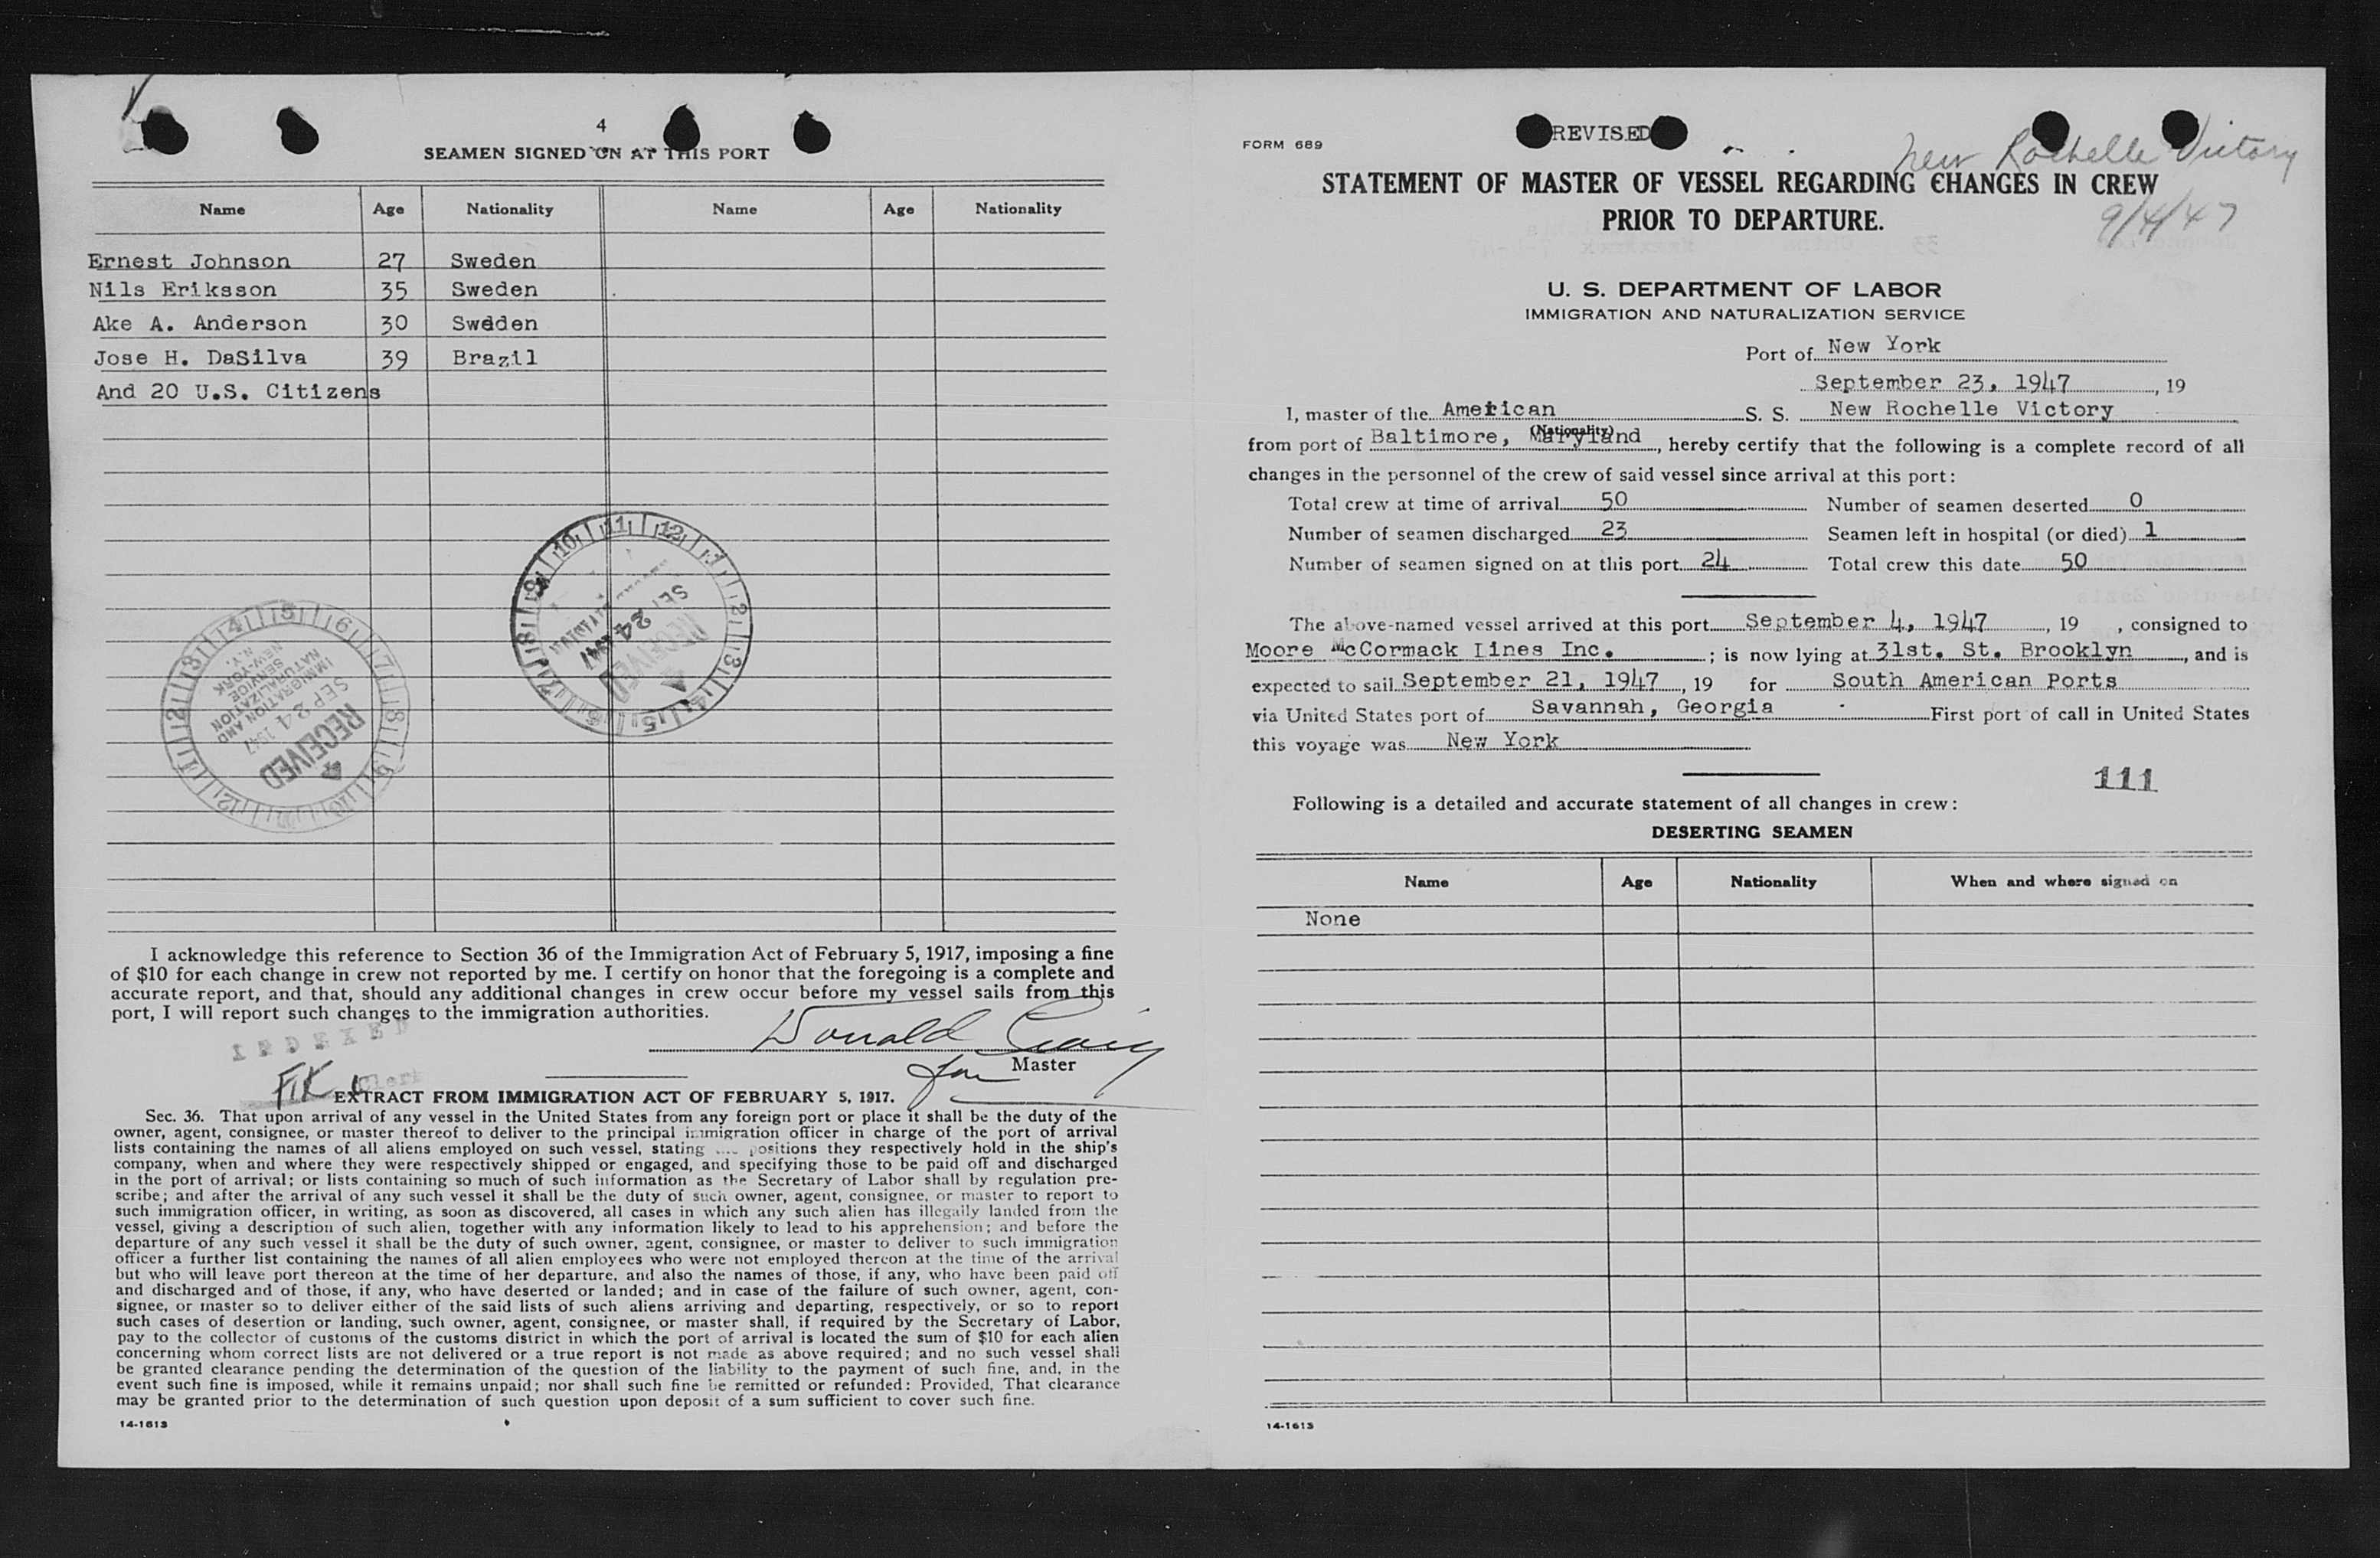 4
SEAMEN SIGNED ON AT THIS PORT
Name Age Nationality Name Age Nationality
Ernest Johnson 27 Sweden
Nils Eriksson 35 Sweden
Ake A. Anderson 30 Sweden
Jose H. DaSilva 39 Brazil
And 20 U.S. Citizens
RECEIVED
SEP 24 1947
IMMIGRATION AND
NATURALIZATION
SERVICE
NEW-YORK
N.Y.
RECEIVED
SEP 24 1947
I acknowledge this reference to Section 36 of the Immigration Act of February 5, 1917, imposing a fine
of $10 for each change in crew not reported by me. I certify on honor that the foregoing is a complete and
accurate report, and that, should any additional changes in crew occur before my vessel sails from this
port, I will report such changes to the immigration authorities.
INDEXED
Donald Craig
for Master
Clerk
EXTRACT FROM IMMIGRATION ACT OF FEBRUARY 5, 1917.
Sec. 36. That upon arrival of any vessel in the United States from any foreign port or place it shall be the duty of the
owner, agent, consignee, or master thereof to deliver to the principal immigration officer in charge of the port of arrival
lists containing the names of all aliens employed on such vessel, stating the positions they respectively hold in the ship's
company, when and where they were respectively shipped or engaged, and specifying those to be paid off and discharged
in the port of arrival; or lists containing so much of such information as the Secretary of Labor shall by regulation pre-
scribe; and after the arrival of any such vessel it shall be the duty of such owner, agent, consignee, or master to report to
such immigration officer, in writing, as soon as discovered, all cases in which any such alien has illegally landed from the
vessel, giving a description of such alien, together with any information likely to lead to his apprehension; and before the
departure of any such vessel it shall be the duty of such owner, agent, consignee, or master to deliver to such immigration
officer a further list containing the names of all alien employees who were not employed thereon at the time of the arrival
but who will leave port thereon at the time of her departure, and also the names of those, if any, who have been paid off
and discharged and of those, if any, who have deserted or landed; and in case of the failure of such owner, agent, con-
signee, or master so to deliver either of the said lists of such aliens arriving and departing, respectively, or so to report
such cases of desertion or landing, such owner, agent, consignee, or master shall, if required by the Secretary of Labor,
pay to the collector of customs of the customs district in which the port of arrival is located the sum of $10 for each alien
concerning whom correct lists are not delivered or a true report is not made as above required; and no such vessel shall
be granted clearance pending the determination of the question of the liability to the payment of such fine, and, in the
event such fine is imposed, while it remains unpaid; nor shall such fine be remitted or refunded: Provided, That clearance
may be granted prior to the determination of such question upon deposit of a sum sufficient to cover such fine.
14-1613
FORM 689
REVISED
New Rochelle Victory
9/4/47
STATEMENT OF MASTER OF VESSEL REGARDING CHANGES IN CREW
PRIOR TO DEPARTURE.
U. S. DEPARTMENT OF LABOR
IMMIGRATION AND NATURALIZATION SERVICE
Port of New York
September 23, 1947, 19
I, master of the American S. S. New Rochelle Victory
(Nationality)
from port of Baltimore, Maryland, hereby certify that the following is a complete record of all
changes in the personnel of the crew of said vessel since arrival at this port:
Total crew at time of arrival 50 Number of seamen deserted 0
Number of seamen discharged 23 Seamen left in hospital (or died) 1
Number of seamen signed on at this port 24 Total crew this date 50
The above-named vessel arrived at this port September 4, 1947, 19 , consigned to
Moore McCormack Lines Inc. ; is now lying at 31st. St. Brooklyn, and is
expected to sail September 21, 1947, 19 for South American Ports
via United States port of Savannah, Georgia First port of call in United States
this voyage was New York
111
Following is a detailed and accurate statement of all changes in crew:
DESERTING SEAMEN
Name Age Nationality When and where signed on
None
14-1613